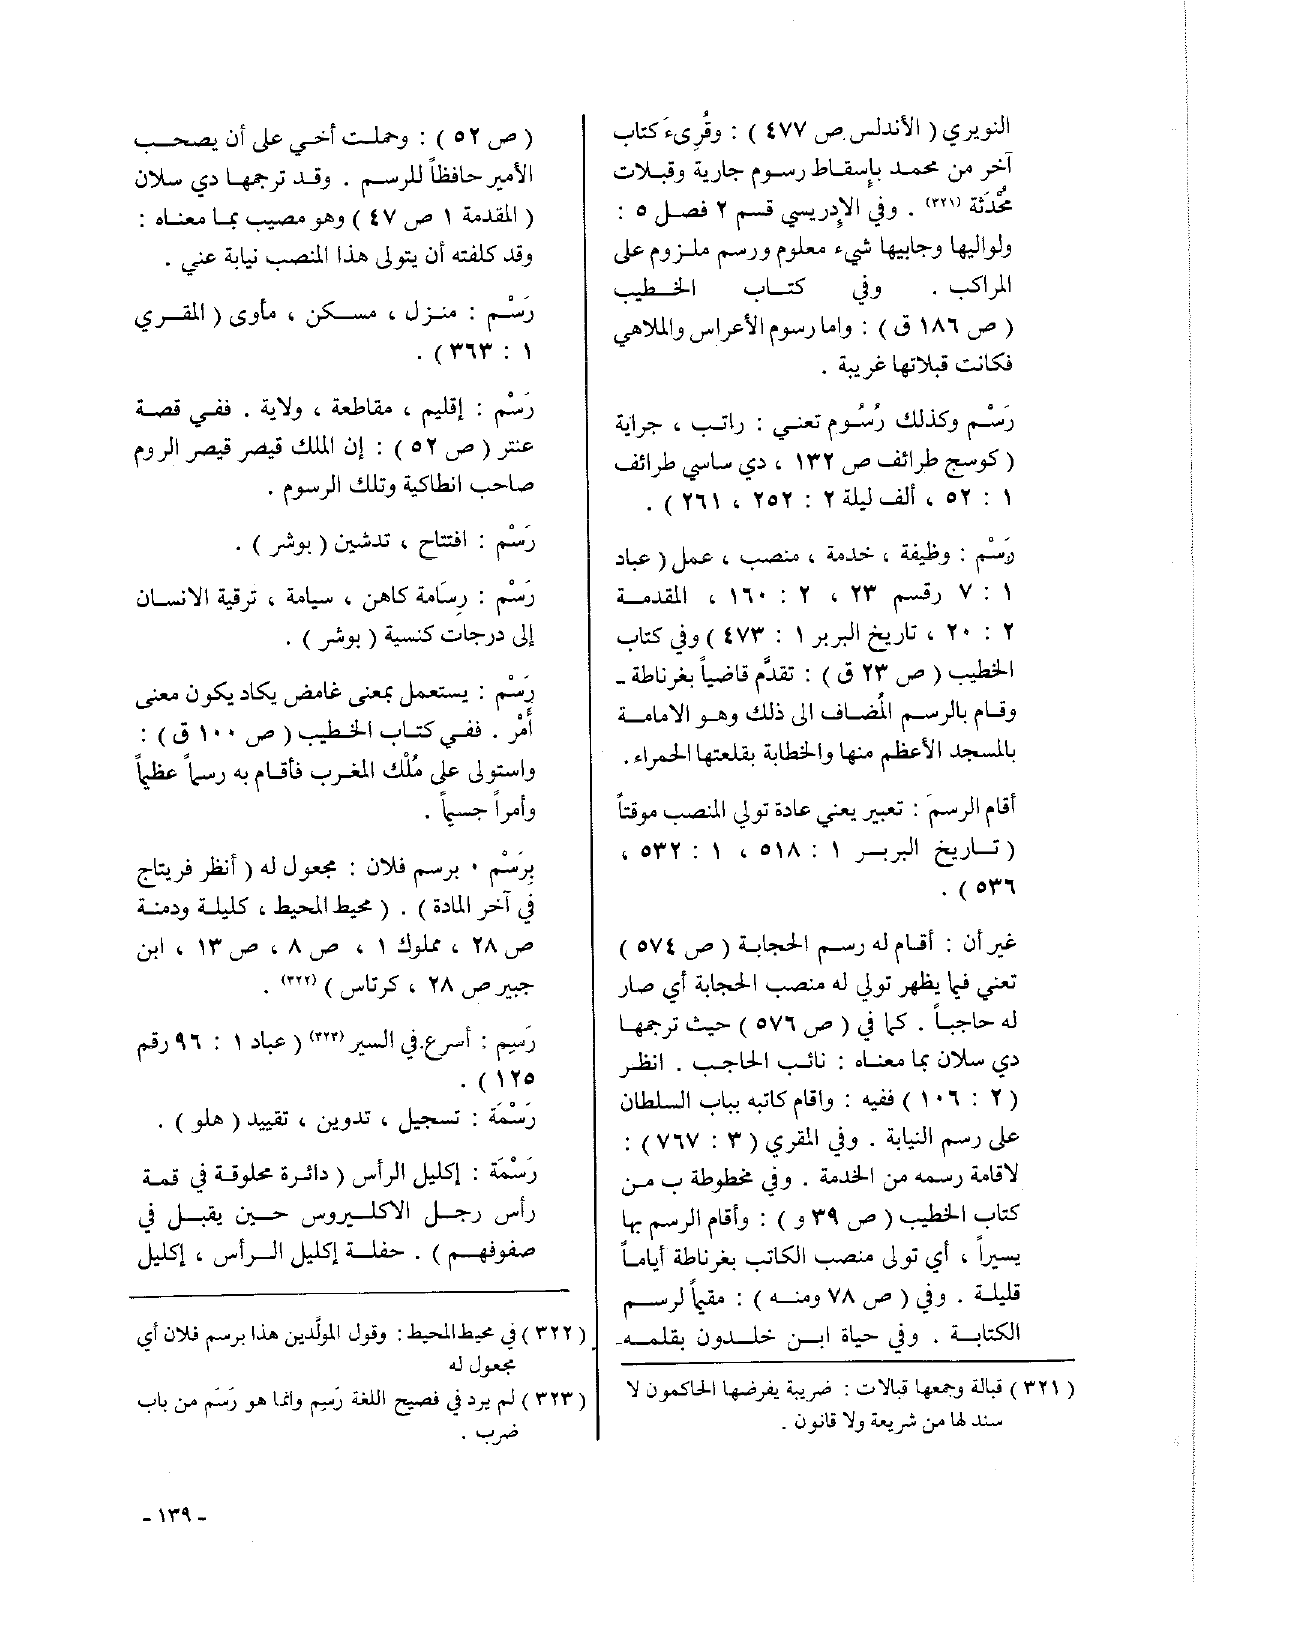 النويري ( الأندلس ص ٤٧٧ ) : وقُرِىءَ كتاب
آخر من محمد بإسقاط رسوم جارية وقبلات
مُحْدَثة (٣٢١) . وفي الإدريسي قسم ٢ فصل ٥ :
ولواليها وجابيها شيء معلوم ورسم ملزوم على
المراكب . وفي كتاب الخطيب
( ص ١٨٦ ق ) : واما رسوم الأعراس والملاهي
فكانت قبلاتها غريبة .
رَسْم وكذلك رُسُوم تعني : راتب ، جراية
( كوسج طرائف ص ١٣٢ ، دي ساسي طرائف
١ : ٥٢ ، ألف ليلة ٢ : ٢٥٢ ، ٢٦١ ) .
رَسْم : وظيفة ، خدمة ، منصب ، عمل ( عباد
١ : ٧ رقم ٢٣ ، ٢ : ١٦٠ ، المقدمة
٢ : ٢٠ ، تاريخ البربر ١ : ٤٧٣ ) وفي كتاب
الخطيب ( ص ٢٣ ق ) : تقدَّم قاضياً بغرناطة ـ
وقام بالرسم المُضاف الى ذلك وهو الامامة
بالمسجد الأعظم منها والخطابة بقلعتها الحمراء .
أقام الرسمَ : تعبير يعني عادة تولي المنصب موقتاً
( تاريخ البربر ١ : ٥١٨ ، ١ : ٥٣٢ ،
٥٣٦ ) .
غير أن : أقام له رسم الحجابة ( ص ٥٧٤ )
تعني فيما يظهر تولي له منصب الحجابة أي صار
له حاجباً . كما في ( ص ٥٧٦ ) حيث ترجمها
دي سلان بما معناه : نائب الحاجب . انظر
( ٢ : ١٠٦ ) ففيه : واقام كاتبه بباب السلطان
على رسم النيابة . وفي المقري ( ٣ : ٧٦٧ ) :
لاقامة رسمه من الخدمة . وفي مخطوطة ب من
كتاب الخطيب ( ص ٣٩ و ) : وأقام الرسم بها
يسيراً ، أي تولى منصب الكاتب بغرناطة أياماً
قليلة . وفي ( ص ٧٨ ومنه ) : مقيماً لرسم
الكتابة . وفي حياة ابن خلدون بقلمه
( ٣٢١ ) قبالة وجمعها قبالات : ضريبة يفرضها الحاكمون لا
سند لها من شريعة ولا قانون .
( ص ٥٢ ) : وحملت أخي على أن يصحب
الأمير حافظاً للرسم . وقد ترجمها دي سلان
( المقدمة ١ ص ٤٧ ) وهو مصيب بما معناه :
وقد كلفته أن يتولى هذا المنصب نيابة عني .
رَسْم : منزل ، مسكن ، مأوى ( المقري
١ : ٣٦٣ ) .
رَسْم : إقليم ، مقاطعة ، ولاية . ففي قصة
عنتر ( ص ٥٢ ) : إن الملك قيصر قيصر الروم
صاحب انطاكية وتلك الرسوم .
رَسْم : افتتاح ، تدشين ( بوشر ) .
رَسْم : رِسَامة كاهن ، سيامة ، ترقية الانسان
إلى درجات كنسية ( بوشر ) .
رَسْم : يستعمل بمعنى غامض يكاد يكون معنى
أمْر . ففي كتاب الخطيب ( ص ١٠٠ ق ) :
واستولى على مُلْك المغرب فأقام به رسماً عظيماً
وأمراً جسيماً .
بِرَسْم ٠ برسم فلان : مجعول له ( أنظر فريتاج
في آخر المادة ) . ( محيط المحيط ، كليلة ودمنة
ص ٢٨ ، مملوك ١ ، ص ٨ ، ص ١٣ ، ابن
جبير ص ٢٨ ، كرتاس ) (٣٢٢) .
رَسِيم : أسرع في السير (٣٢٣) ( عباد ١ : ٩٦ رقم
١٢٥ ) .
رَسْمَة : تسجيل ، تدوين ، تقييد ( هلو ) .
رَسْمَة : إكليل الرأس ( دائرة محلوقة في قمة
رأس رجل الاكليروس حين يقبل في
صفوفهم ) . حفلة إكليل الرأس ، إكليل
( ٣٢٢ ) في محيط المحيط : وقول المولَّدين هذا برسم فلان أي
مجعول له
( ٣٢٣ ) لم يرد في فصيح اللغة رَسِيم وانما هو رَسَم من باب
ضرب .
ـ ١٣٩ ـ